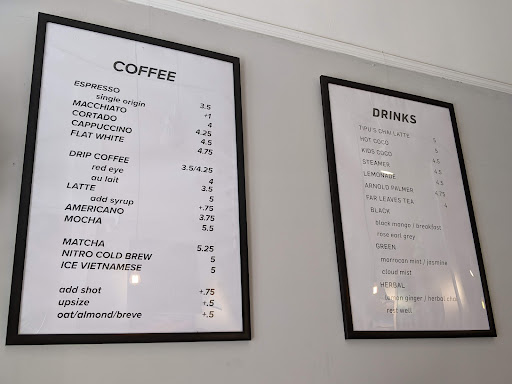 COFFEE
ESPRESSO 3.5
single origin +1
MACCHIATO 4
CORTADO 4.25
CAPPUCCINO 4.5
FLAT WHITE 4.75
DRIP COFFEE 3.5/4.25
red eye 4
au lait 3.5
LATTE 5
add syrup +.75
AMERICANO 3.75
MOCHA 5.5
MATCHA 5.25
NITRO COLD BREW 5
ICE VIETNAMESE 5
add shot +.75
upsize +.5
oat/almond/breve +.5
DRINKS
TIPU'S CHAI LATTE 5
HOT COCO 5
KIDS COCO 4.5
STEAMER 4.5
LEMONADE 4.5
ARNOLD PALMER 4.75
FAR LEAVES TEA 4
BLACK
black mango / breakfast
rose earl grey
GREEN
morrocan mint / jasmine
cloud mist
HERBAL
lemon ginger / herbal chai
rest well